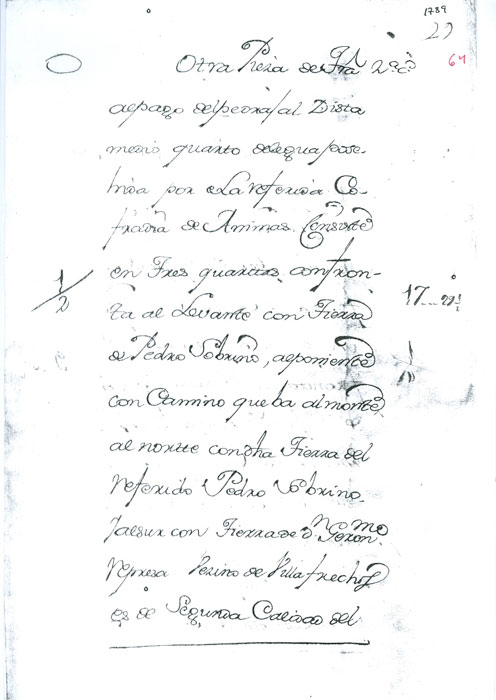 1789
29
64
Otra Pieza de Tra 2ª cª
al pago del pedrajal Dista
medio quarto de legua posse-
hida por la referida Co-
fradia de Animas Consiste
en Tres quartas confron-
1/2
17
ta al Levante con Tierra
de Pedro Sobrino, al poniente
con Camino que ba al monte
al norte con otra Tierra del
referido Pedro Sobrino
Y al sur con Tierra de Dn Geronmo
Represa Vezino de Villafrechos
es de Segunda Calidad del